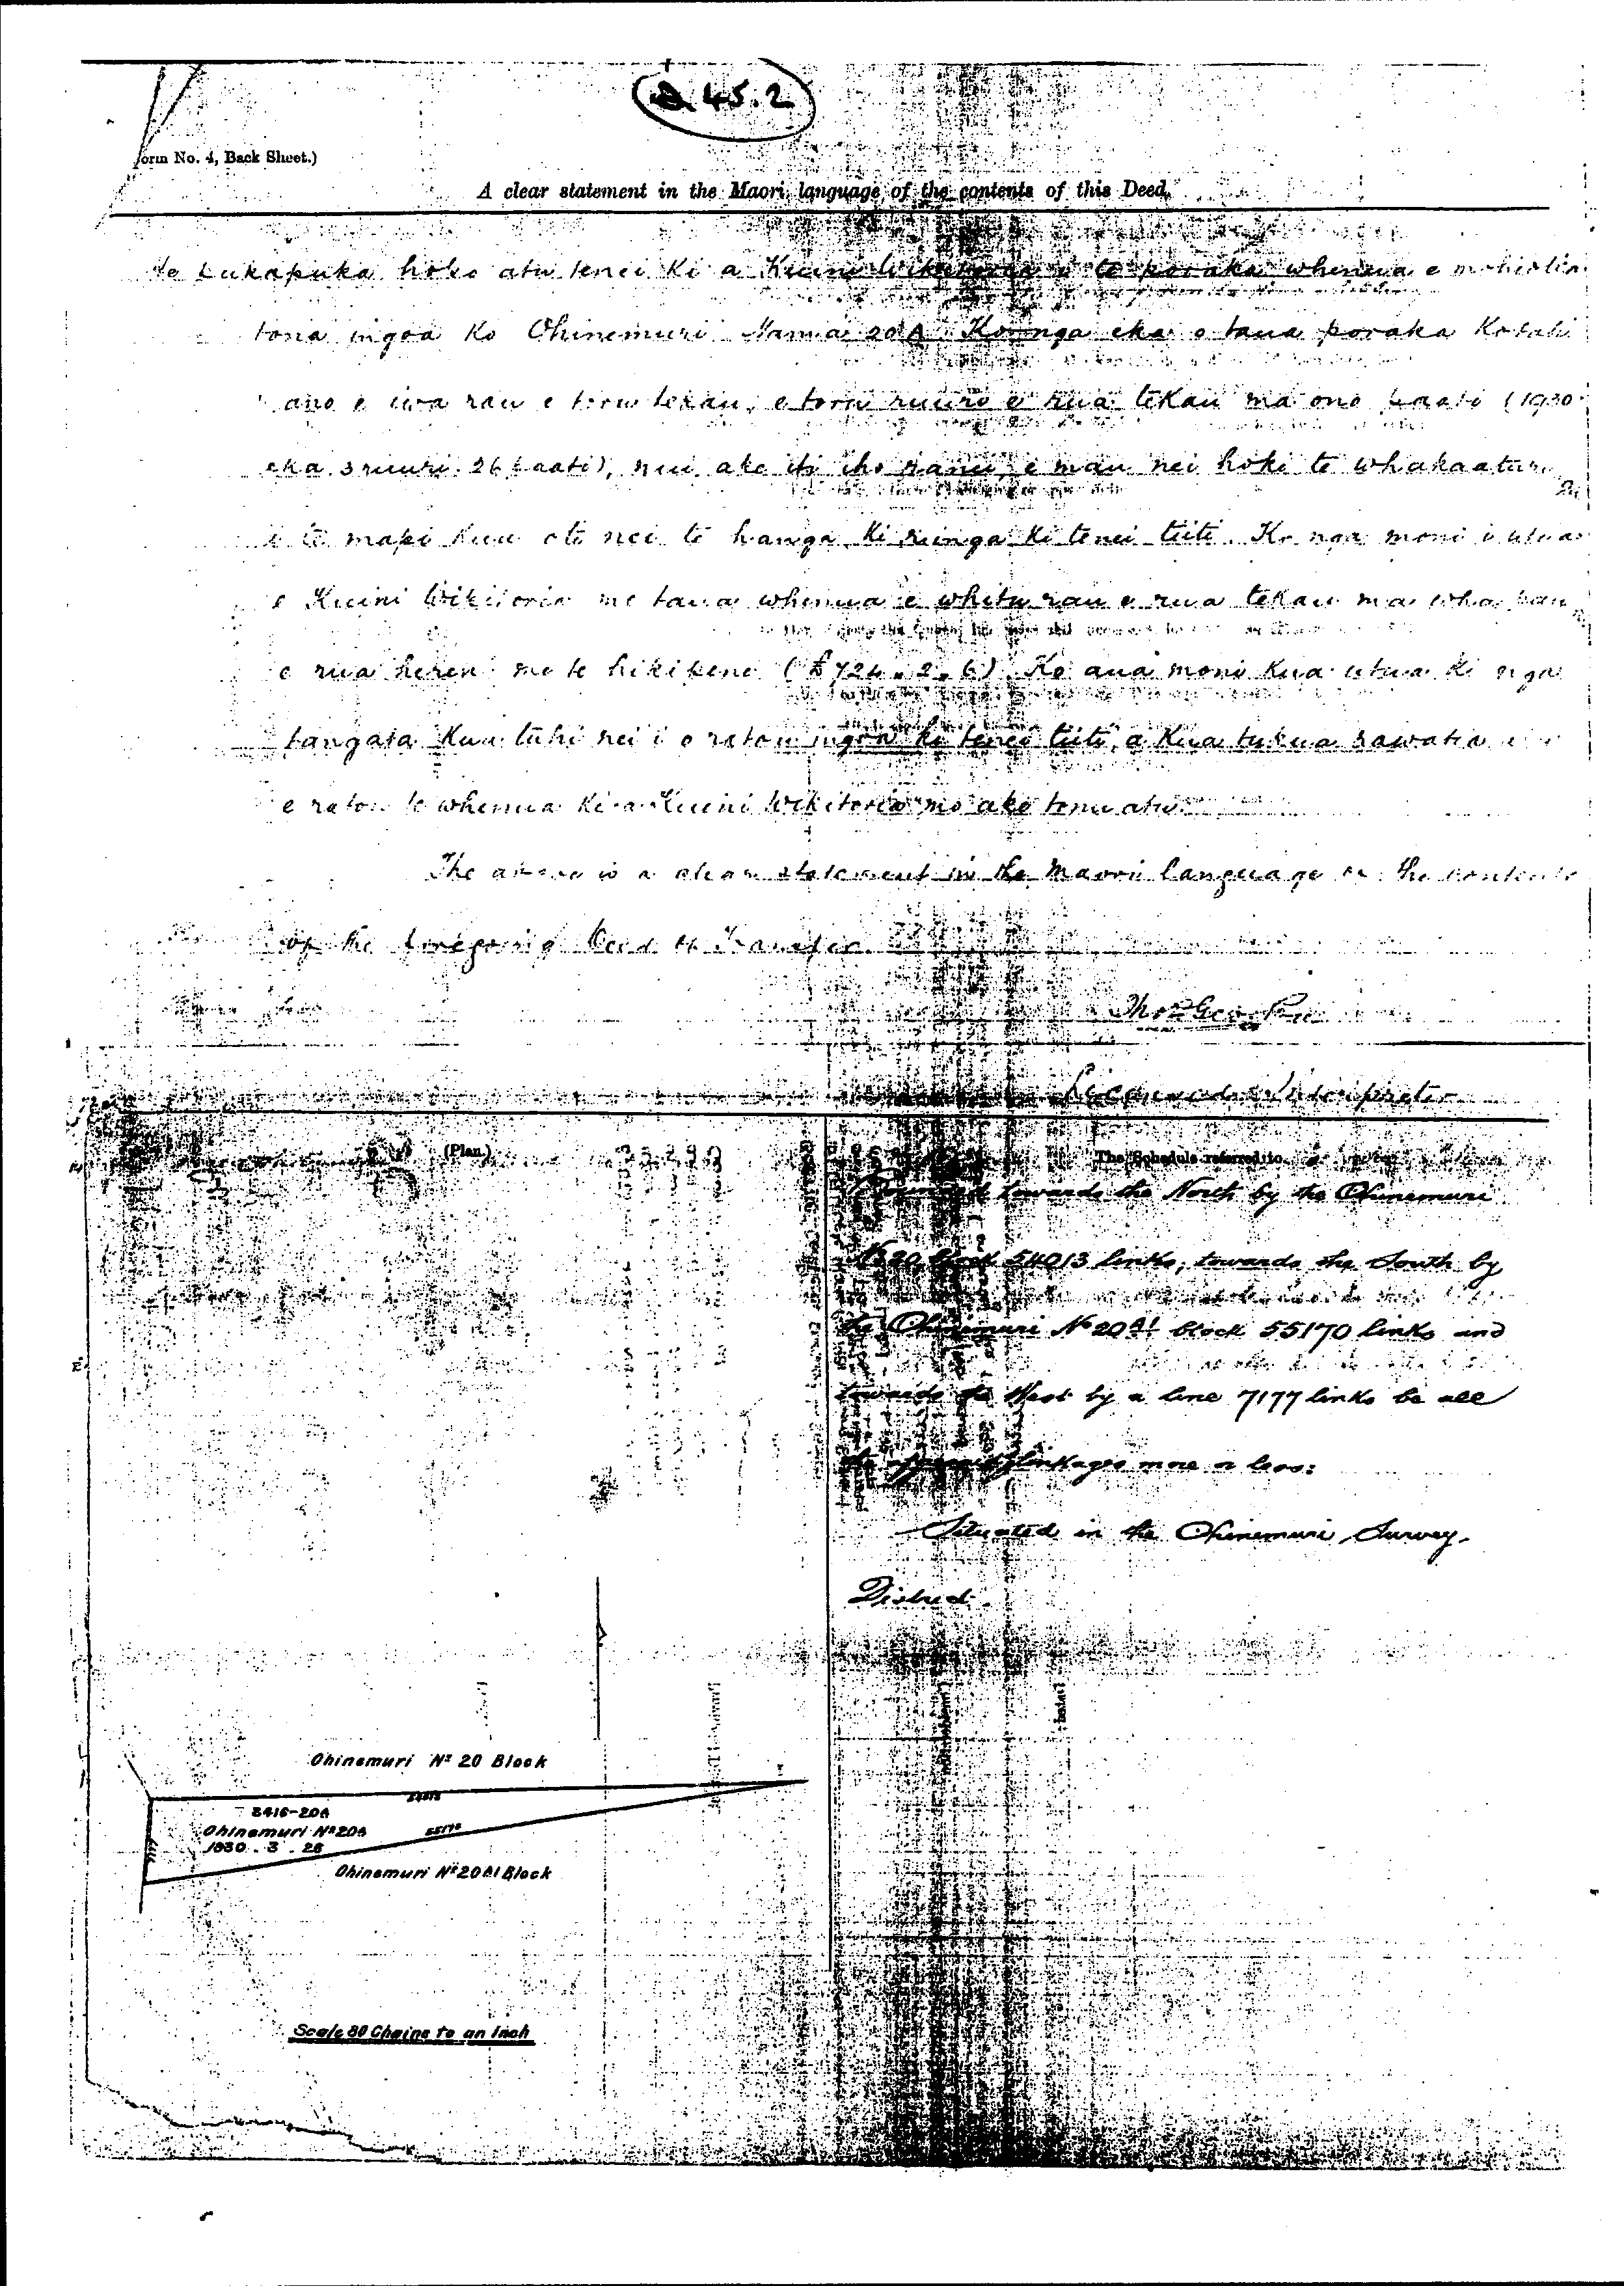 45.2
orm No. 4, Back Sheet.)
A clear statement in the Maori language of the contents of this Deed.
He Pukapuka hoko atu tenei ki a Kuini Wikitoria i te poraka whenua e mohiotia
tona ingoa ko Ohinemuri Nama 20A. Ko nga eka o taua poraka Kotahi
mano e iwa rau e toru tekau, e toru ruuri e rua tekau ma ono paati (1930
eka 3 ruuri 26 paati), nui ake iti iho ranei, e mau nei hoki te whakaaturanga
i te mapi kua oti nei te hanga ki runga ki tenei tiiti. Ko nga moni i utua
e Kuini Wikitoria mo taua whenua e whitu rau e rua tekau ma wha pauna
e rua hereni me te hikipene (£724.2.6) Ko aua moni kua utua ki nga
tangata kua tuhi nei i o ratou ingoa ki tenei tiiti, a kua tukua rawatia
e ratou te whenua ki a Kuini Wikitoria mo ake tonu atu.
The above is a clear statement in the Maori language of the contents
of the foregoing Deed of Transfer
Thos Geo
Licensed Interpreter
(Plan.)
The Schedule referred to
towards the North by the Ohinemuri
No 20 block 54013 links; towards the South by
the Ohinemuri No 20A1 block 55170 links and
towards the West by a line 7177 links be all
the linkages more or less:
Situated in the Ohinemuri Survey
District.
Ohinemuri No 20 Block
54013
6416-20A
Ohinemuri No 20A
1930 . 3 . 26
55170
Ohinemuri No 20A1 Block
Scale 80 Chains to an Inch